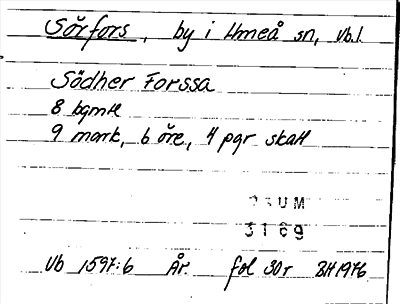 Sörfors, by i Umeå sn, Vb.l.
Södher Forssa
8 bgmtl
9 mark, 6 öre, 4 pgr skatt
DAUM
3169
Vb 1597:6 År. fol 30r BH 1976